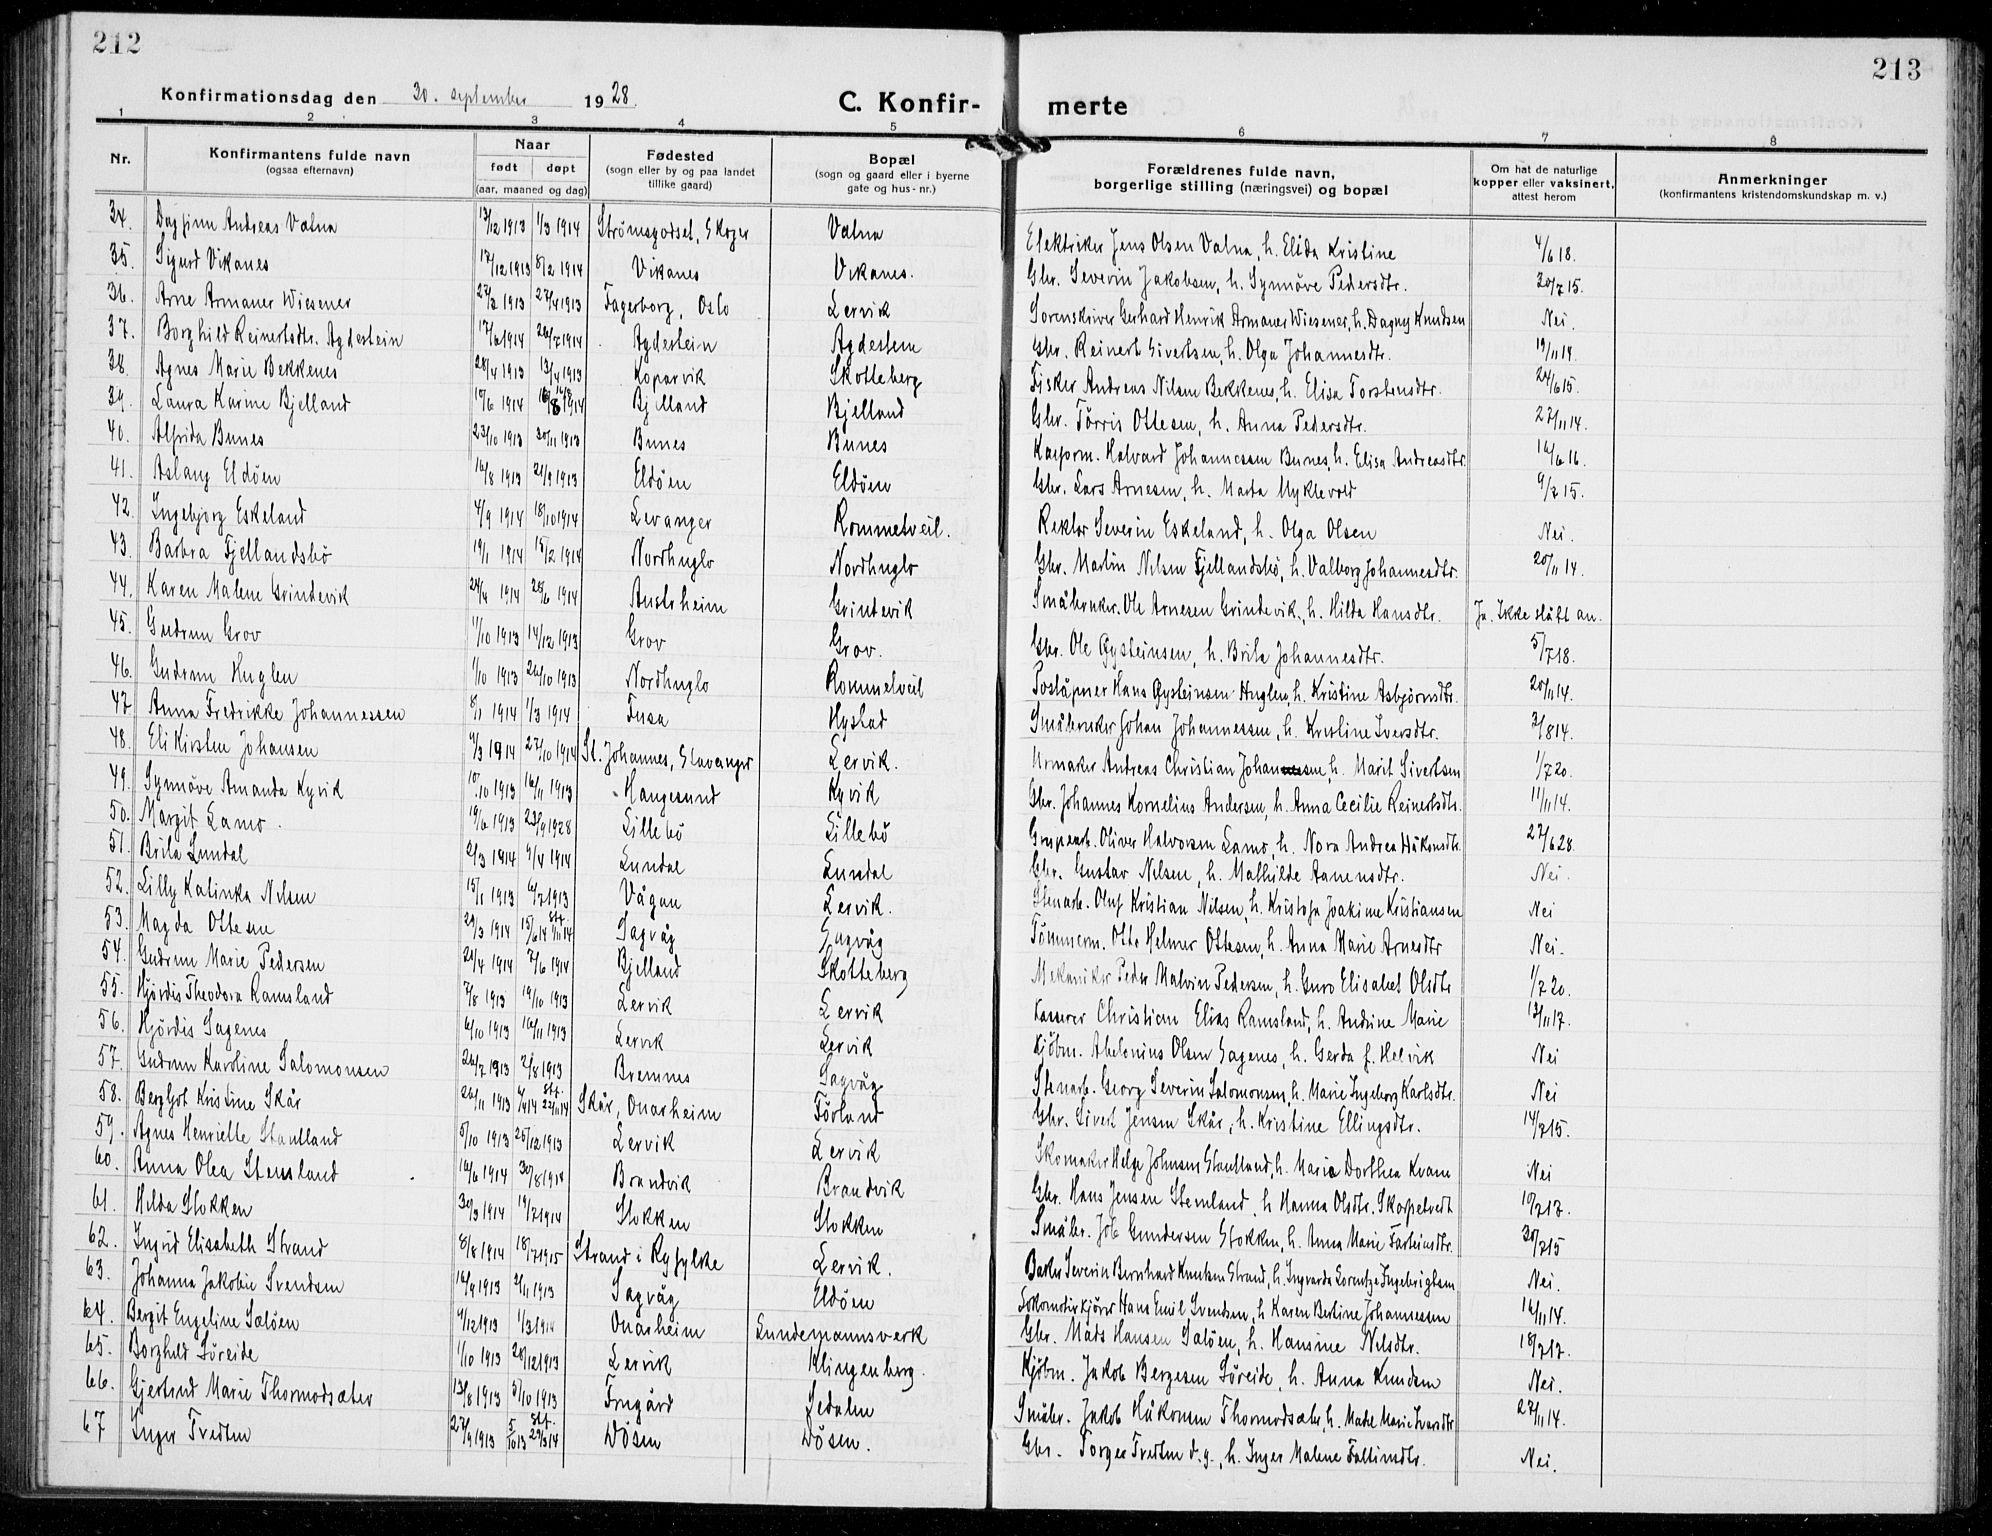 212
213
Konfirmationsdag den 30. september 1928.
C. Konfirmerte
1 2 3 4 5 6 7 8
Nr. | Konfirmantens fulde navn (ogsaa efternavn) | Naar født | døpt (aar, maaned og dag) | Fødested (sogn eller by og paa landet tillike gaard) | Bopæl (sogn og gaard eller i byerne gate og hus-nr.) | Forældrenes fulde navn, borgerlige stilling (næringsvei) og bopæl | Om hat de naturlige kopper eller vaksinert, attest herom | Anmerkninger (konfirmantens kristendomskundskap m. v.)
34. Dagfinn Andreas Valna 13/12 1913 1/3 1914 Strømsgodset, Skoger Valna Elektriker Jens Olsen Valna, h. Elida Kristine 4/6 18.
35. Sigurd Vikanes 17/12 1913 8/2 1914 Vikanes Vikanes. Gbr. Severin Jakobsen, h. Synnöve Pedersdtr. 20/7 15.
36. Arne Armauer Wiesener 27/2 1913 27/4 1913 Fagerborg, Oslo Lervik Sorenskriver Gerhard Henrik Armauer Wiesener, h. Dagny Knudsen Nei.
37. Borghild Reinertsdtr. Agdestein 17/6 1914 26/7 1914 Agdestein Agdestein Gbr. Reinert Sivertsen, h. Olga Johannesdtr. 19/11 14.
38. Agnes Marie Bekkenes 28/4 1913 13/4 1913 Kopervik Skotteberg Fisker Andreas Nilsen Bekkenes, h. Elisa Torstensdtr. 24/6 15.
39. Laura Karine Bjelland 15/6 1914 16/8 1914 Bjelland Bjelland Gbr. Törris Ottesen, h. Anna Pedersdtr. 27/11 14.
40. Alfrida Bunes 23/10 1913 30/11 1913 Bunes Bunes Halvard Johannessen Bunes, h. Elisa Andreasdtr. 16/6 16.
41. Aslaug Eldöen 16/8 1913 21/9 1913 Eldöen Eldöen Gbr. Lars Arnesen, h. Marta Myklevold 9/7 15.
42. Ingebjorg Eskeland 4/9 1914 18/10 1914 Levanger Rommetveit. Rektor Severin Eskeland, h. Olga Olsen Nei.
43. Barbra Fjellandsbö 19/1 1914 15/2 1914 Nordhuglo Nordhuglo Gbr. Martin Nilsen Fjellandsbö, h. Valborg Johannesdtr. 20/11 14.
44. Karen Malene Grindevik 24/4 1914 28/6 1914 Austrheim Grindevik Småbruker. Ole Arnesen Grindevik, h. Hilda Hansdtr. Ja. Ikke slått an.
45. Gudrun Grov 11/10 1913 14/12 1913 Grov Grov. Gbr. Ole Øysteinsen, h. Brita Johannesdtr. 5/7 18.
46. Gudrun Huglen 1/10 1913 26/10 1913 Nordhuglo Rommetveit Poståpner Hans Øysteinsen Huglen, h. Kristine Asbjörnsdtr. 20/11 14.
47 Anna Fredrikke Johannessen 8/1 1914 1/3 1914 Fusa Hystad Småbruker Johan Johannessen, h. Kristine Iversdtr. 3/8 14.
48. Eli Kirsten Johansen 9/3 1914 27/10 1914 St. Johannes, Stavanger Lervik. Urmaker Andreas Christian Johansen, h. Marit Sivertsen 1/7 20.
49. Synnöve Amanda Kyvik 10/10 1913 16/11 1913 Haugesund Kyvik Gbr. Johannes Kornelius Andersen, h. Anna Cecilie Reinertsdtr. 11/11 14.
50. Margit Lamo. 19/6 1913 23/9 1928 Lillebö Lillebö Grubearb. Oliver Halvorsen Lamo, h. Nora Andrea Håkonsdtr. 27/6 28.
51. Brita Lundal 2/3 1914 9/4 1914 Lundal Lundal Gbr. Gustav Nilsen, h. Mathilde Aanensdtr. Nei.
52. Lilly Katinka Nilsen 15/1 1913 6/7 1913 Vågan Lervik. Stenarb. Oluf Kristian Nilsen, h. Kristofa Joakime Kristiansen Nei
53. Magda Ottesen 29/3 1914 15/6 14 stf. 1/11 14 Sagvåg Sagvåg Tömmerm. Otto Helmer Ottesen, h. Anna Marie Arnesdtr Nei.
54. Gudrun Marie Pedersen 21/4 1914 7/6 1914 Bjelland Skotteberg Mekaniker Peder Malvin Pedersen, h. Guro Elisabet Olsdtr 1/7 20.
55. Hjördis Theodora Ramsland 7/8 1913 19/10 1913 Lervik Lervik Kasserer Christian Elias Ramsland, h. Andrine Marie 13/11 17.
56. Hjördis Sagenes 6/10 1913 16/11 1913 Lervik Lervik Kjöbm. Abelonius Olsen Sagenes, h. Gerda f. Helvik Nei
57. Gudrun Karoline Salomonsen 26/7 1913 2/8 1913 Bremnes Sagvåg Stenarb. Georg Severin Salomonsen, h. Marie Ingeborg Karlsdtr. Nei
58. Bergljot Kristine Skår 26/11 1913 6/4 14 stf. 22/11 14 Skår, Onarheim Förland Gbr. Sivert Jensen Skår, h. Kristine Ellingsdtr. 14/7 15.
59. Agnes Henriette Stautland 5/10 1913 25/12 1913 Lervik Lervik Skomaker Helge Johnsen Stautland, h. Maria Dorthea Kvam Nei
60. Anna Olea Stensland 16/6 1914 30/8 1914 Brandvik Brandvik Gbr. Hans Jensen Stensland, h Hanna Olsdtr. Skarpetvedt 10/7 17.
61. Hilda Stokken 30/3 1914 19/7 1914 Stokken Stokken Småbr. Job Gundersen Stokken, h. Anna Marie Farteinsdtr. 30/7 15
62. Ingrid Elisabeth Strand 8/8 1914 18/7 1915 Strand i Ryfylke Lervik. Baker Severin Bernhard Knutsen Strand, h. Ingvarda Lorentze Ingebrigtsen Nei.
63. Johanna Jakobie Svendsen 16/9 1913 2/11 1913 Sagvåg Eldöen Lokomotivkjörer Hans Emil Svendsen, h. Karen Bertine Johannessen 16/11 14.
64. Bergit Engeline Sælöen 9/12 1913 1/3 1914 Onarheim Lundemannsverk Gbr. Mads Hansen Salöen, h. Hansine Nilsdtr. 18/7 17.
65. Borghild Söreide 1/10 1913 28/12 1913 Lervik Klingenberg. Kjöbm. Jakob Bergesen Söreide, h. Anna Knudsen Nei.
66. Gjertrud Marie Thormodsæter 13/8 1913 5/10 1913 Frugård Sedalen Småbr. Jakob Håkonsen Thormodsæter, h. Marie Ivarsdtr 27/11 14.
67 Inger Tvedten 27/9 1913 5/10 13 stf. 29/3 14 Dösen Dösen. Gbr. Torger Tvedten d.y., h. Inger Malene Fattinsdtr. Nei.